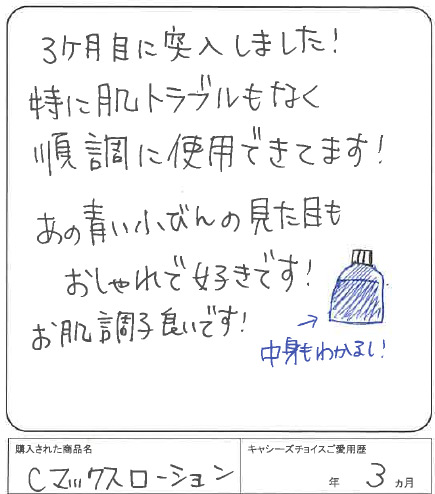 3ヶ月目に突入しました!
特に肌トラブルもなく
順調に使用できてます!
あの青い小びんの見た目も
おしゃれで好きです!
お肌調子良いです!
→
中身もわかるし!
購入された商品名
Cマックスローション
キャシーズチョイスご愛用歴
年 3 ヵ月